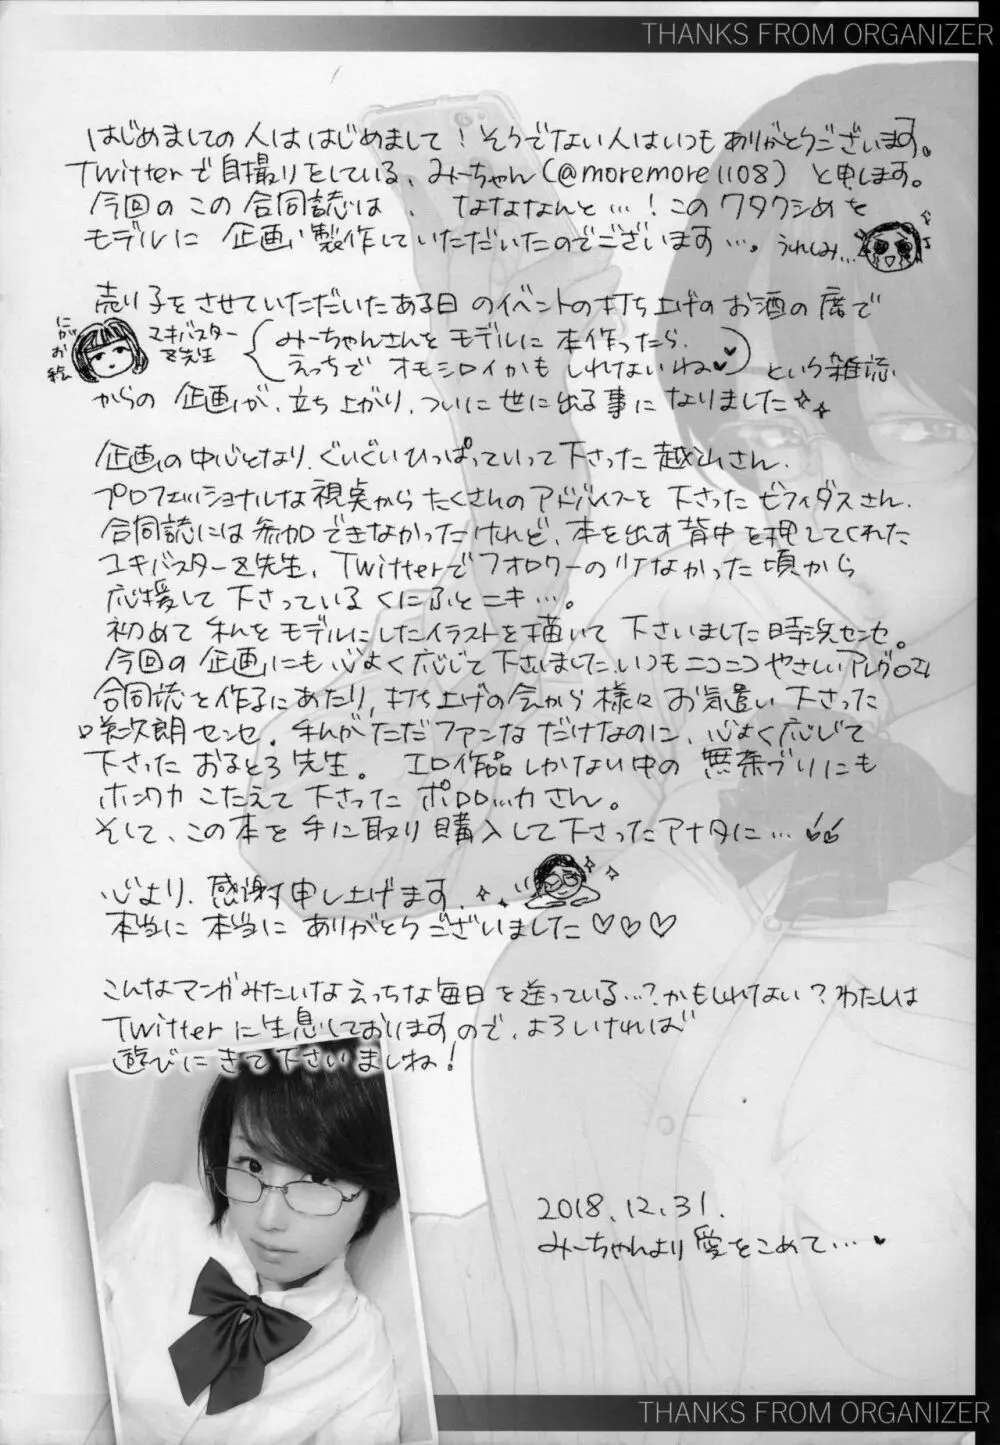 THANKS FROM ORGANIZER
はじめましての人ははじめまして！そうでない人はいつもありがとうございます。
Twitterで自撮りをしている、みーちゃん(@moremore1108)と申します。
今回のこの合同誌は、なななんと…！このワタクシめを
モデルに企画、製作していただいたのでございます…。うれしみ…
売り子をさせていただいたある日のイベントの打ち上げのお酒の席で
にがお絵
ユキバスター
Z先生
みーちゃんさんをモデルに本作ったら、
えっちでオモシロイかもしれないね♥♥
という雑談
からの企画が、立ち上がり、ついに世に出る事になりました
企画の中心となり、ぐいぐいひっぱっていって下さった越山さん、
プロフェッショナルな視点からたくさんのアドバイスを下さったビフィダスさん、
合同誌には参加できなかったけれど、本を出す背中を押してくれた
ユキバスターZ先生、Twitterでフォロワーの少なかった頃から
応援して下さっているくにふとニキ…。
初めて私をモデルにしたイラストを描いて下さいました時浜センセ。
今回の企画にも心よく応じて下さいました、いつもニコニコやさしい
合同誌を作るにあたり、打ち上げの会から様々お気遣い下さった
咲次朗センセ。私がただファンなだけなのに、心よく応じて
下さったおるとろ先生。エロ作品しかない中の無茶ブリにも
ホンワカこたえて下さったポロロッカさん。
そして、この本を手に取り購入して下さったアナタに…
心より、感謝申し上げます。
本当に本当にありがとうございました♡♡♡
こんなマンガみたいなえっちな毎日を送っている…？かもしれない？わたしは
Twitterに生息しておりますので、よろしければ
遊びにきて下さいましね！
2018.12.31.
みーちゃんより愛をこめて…♥
THANKS FROM ORGANIZER